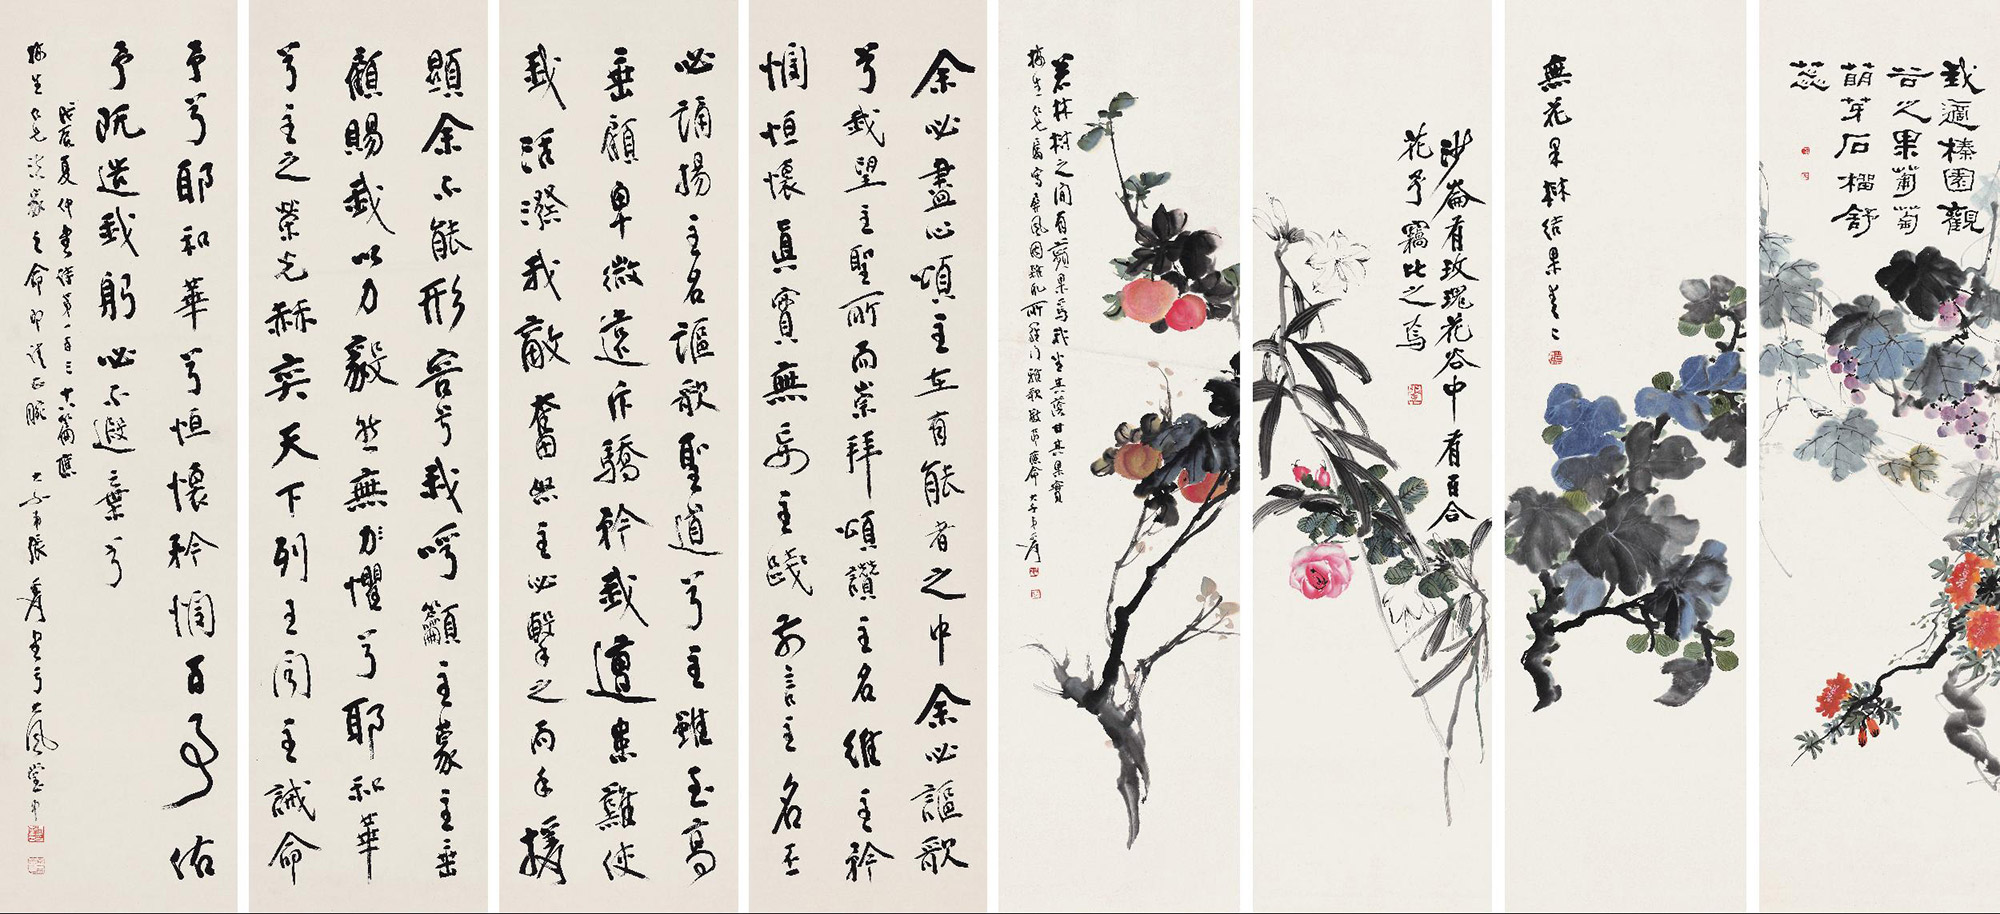 我適榛園觀
谷之果葡萄
萌芽石榴舒
蕊
無花果樹結果青々
沙崙有玫瑰花谷中有百合
花予竊比之焉
若林樹之間有蘋果焉我坐其蔭甘其果實
梅生仁兄屬寫屏風因雜取所羅門雅歌數章應命大千弟爰
余必盡心頌主在有能者之中余必謳歌
兮我望主聖所而崇拜頌讚主名維主矜
憫恒懷真實無妄主踐前言主名丕
必誦揚主名謳歌聖道兮主雖至高
垂顧卑微遠斥驕矜我遭患難使
我活潑我敵奮怒主必擊之而手援
顯余不能形容兮我呼籲主蒙主垂
顧賜我以力毅然無所懼兮耶和華
兮主之榮光赫奕天下列王聞主誡命
予兮耶和華兮恒懷矜憫百事佑
予既造我躬必不遐棄兮
戊辰夏仲書詩第一百三十八篇應
梅生仁兄法家之命即請正腕大千弟張爰書於大風堂中